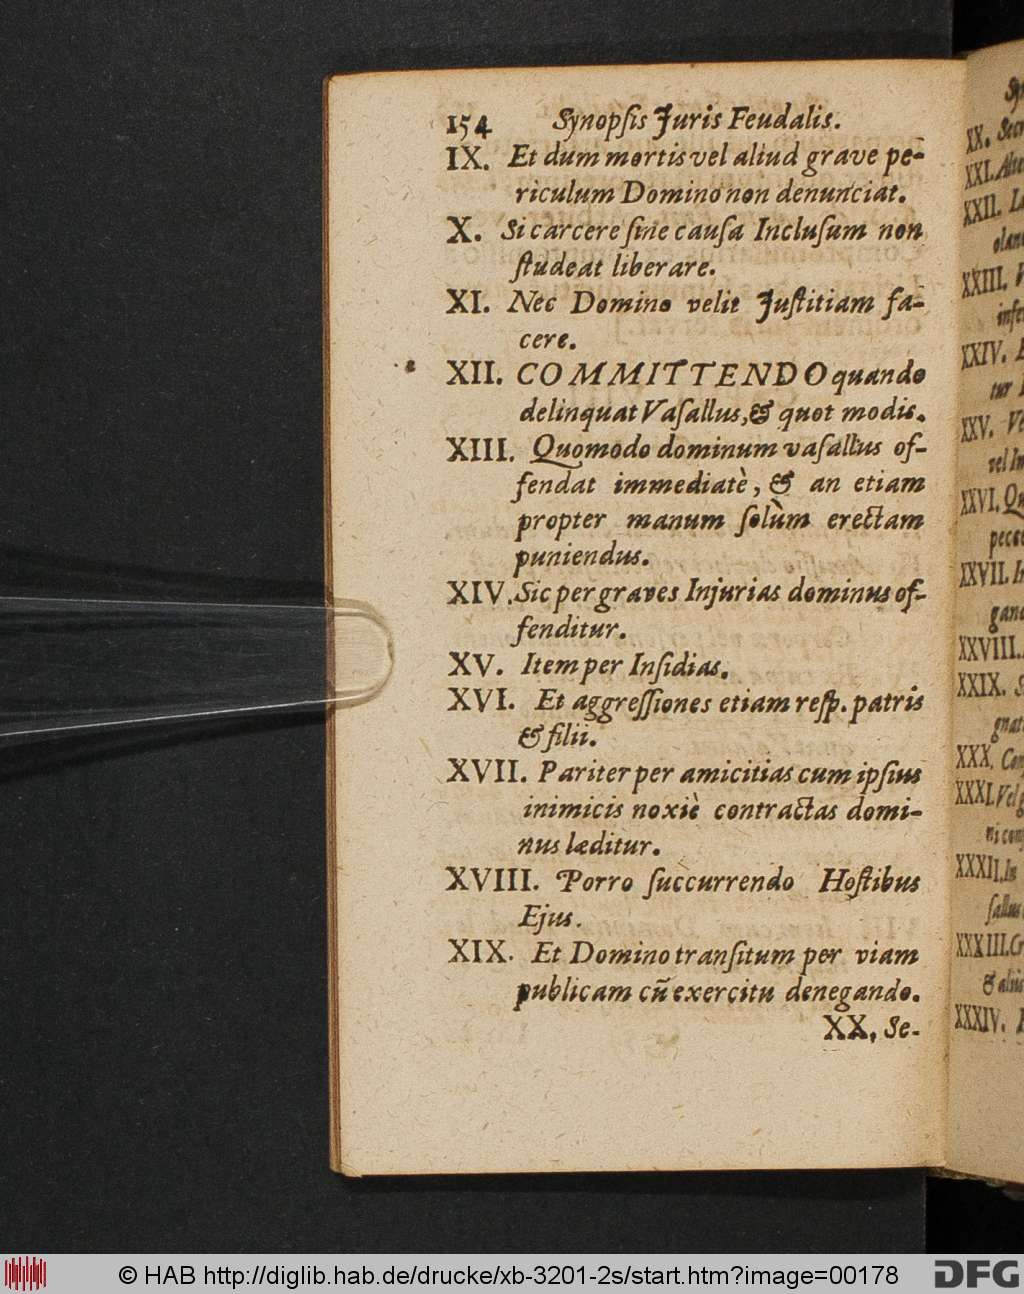 154 Synopſis Juris Feudalis.
IX. Et dum mortis vel aliud grave pe-
riculum Domino non denunciat.
X. Si carcere ſine cauſa Incluſum non
ſtudeat liberare.
XI. Nec Domino velit Juſtitiam fa-
cere.
XII. COMMITTENDO quando
delinquat Vaſallus, & quot modis.
XIII. Quomodo dominum vaſallus of-
fendat immediatè, & an etiam
propter manum ſolùm erectam
puniendus.
XIV. Sic per graves Injurias dominus of-
fenditur.
XV. Item per Inſidias.
XVI. Et aggreſſiones etiam reſp. patris
& filii.
XVII. Pariter per amicitias cum ipſius
inimicis noxiè contractas domi-
nus læditur.
XVIII. Porro ſuccurrendo Hoſtibus
Ejus.
XIX. Et Domino tranſitum per viam
publicam cū exercitu denegando.
XX. Se-
XX.
XXI.
XXII.
XXIII.
XXIV.
tur
XXV.
XXVI.
XXVII.
XXVIII.
XXIX.
XXX.
XXXI.
XXXII.
XXXIII.
XXXIV.
© HAB http://diglib.hab.de/drucke/xb-3201-2s/start.htm?image=00178
DFG